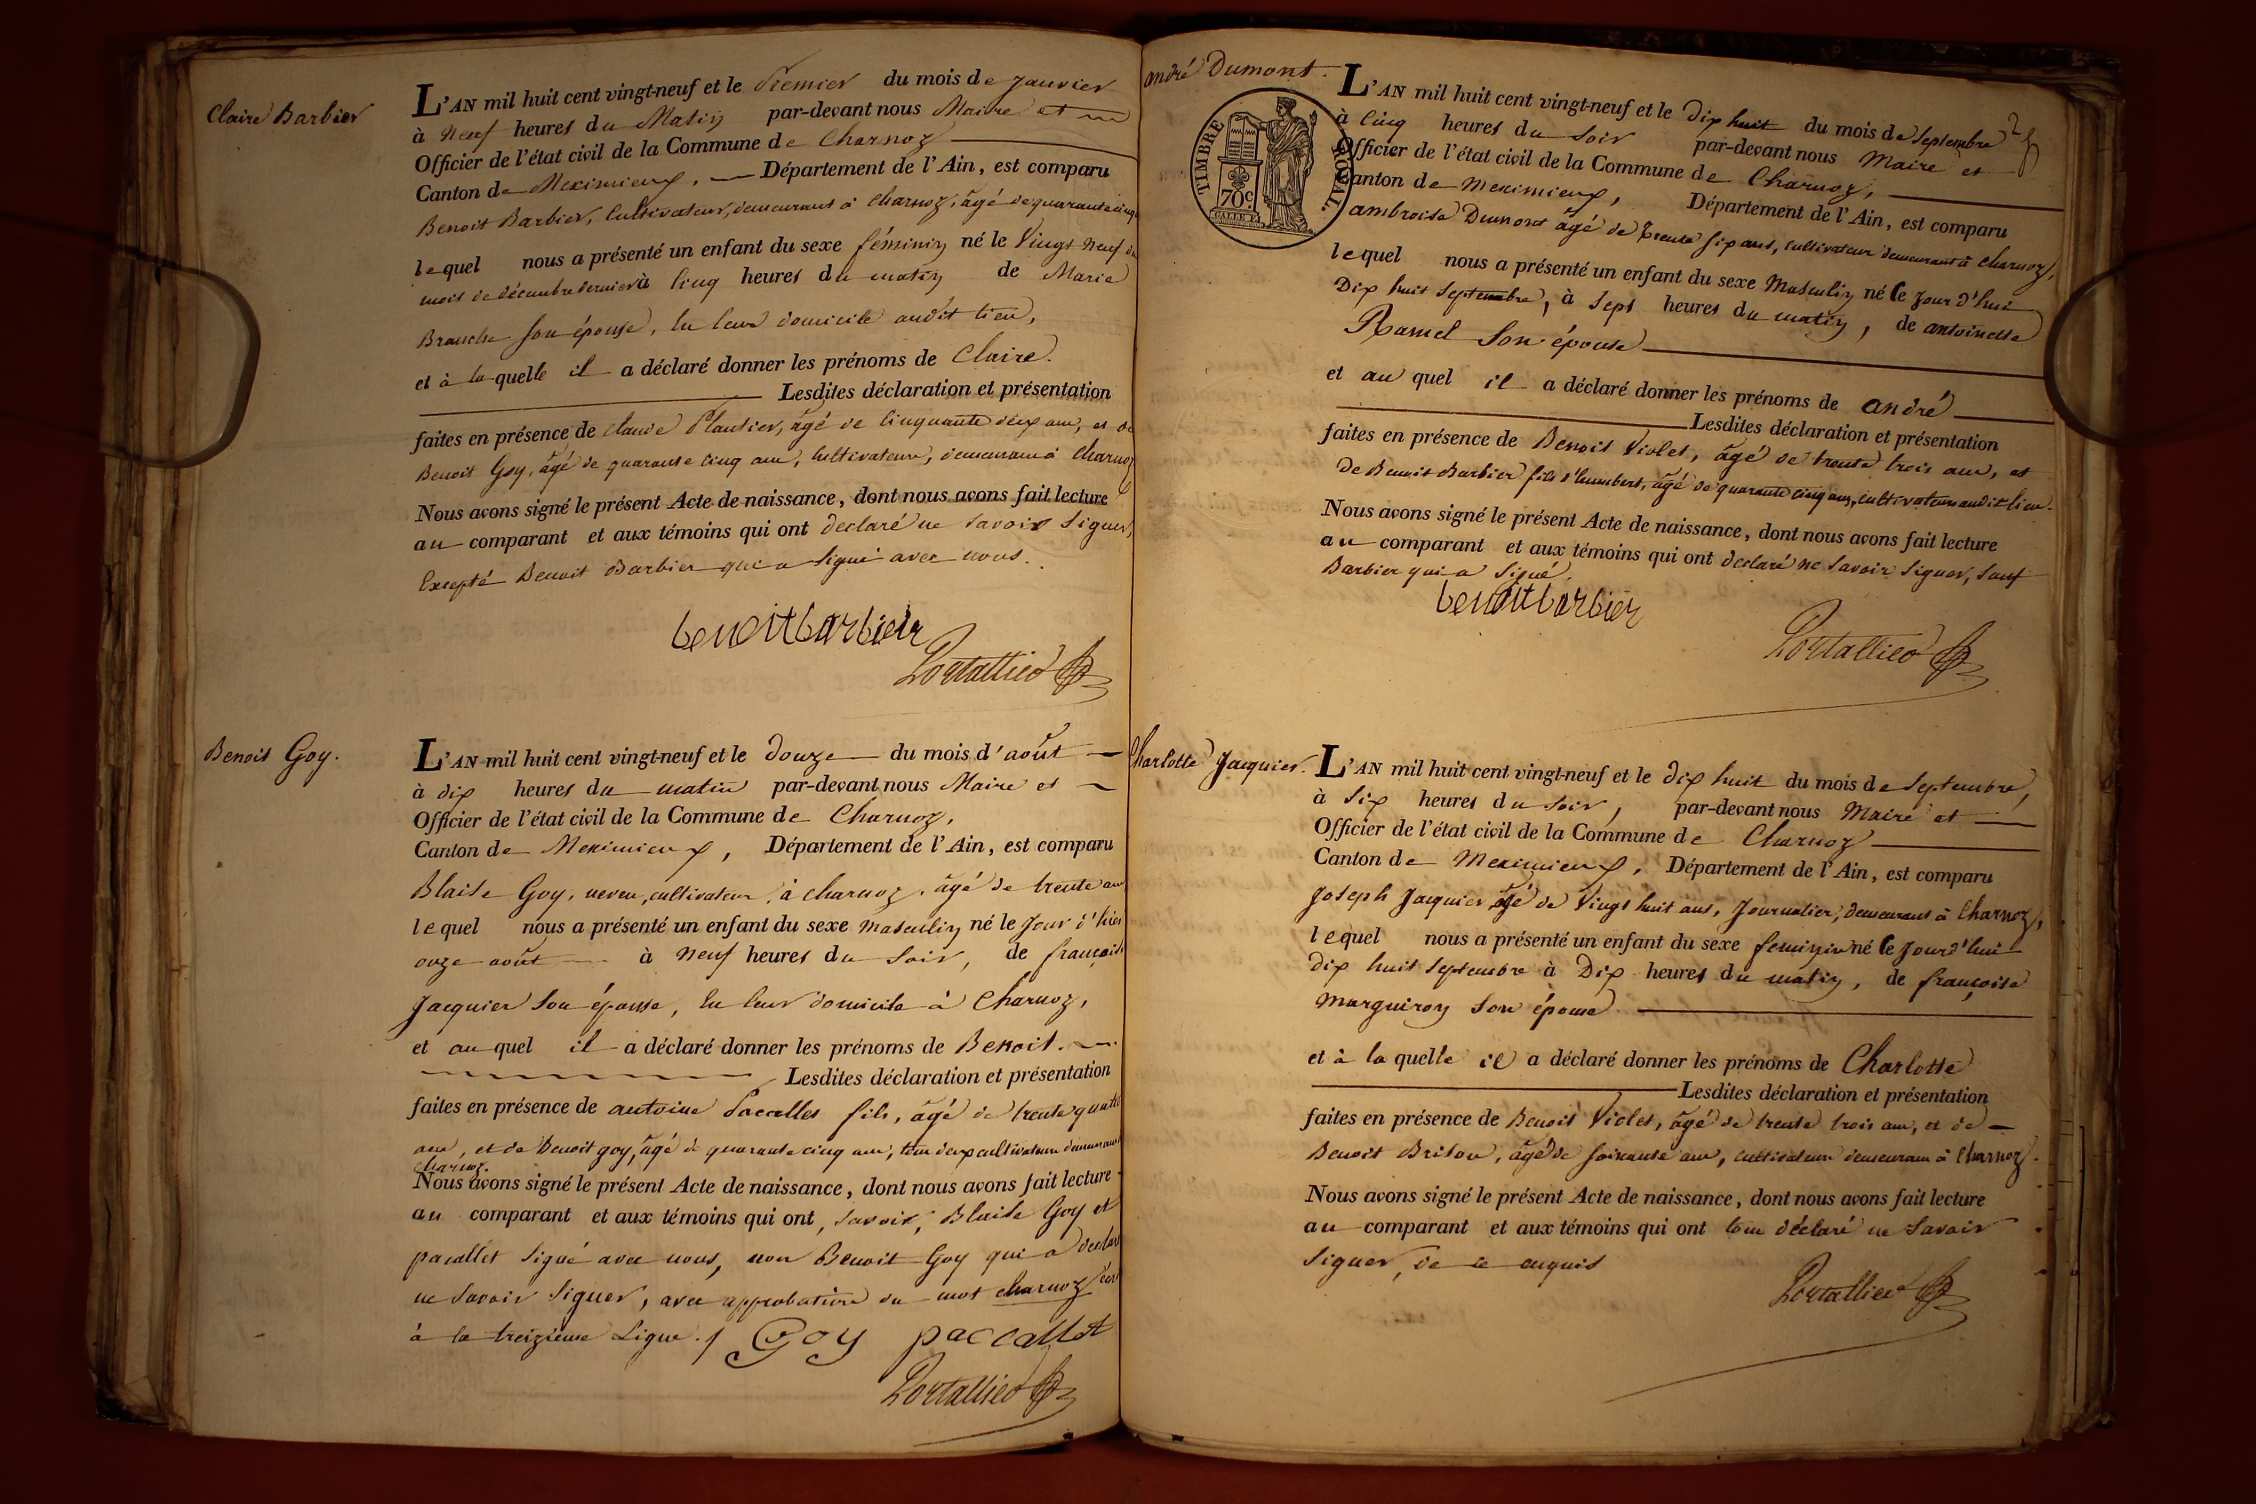 Claire Barbier
L'AN mil huit cent vingt-neuf et le Premier du mois de Janvier
à Neuf heures du Matin par-devant nous Maire et
Officier de l'état civil de la Commune de Charnoz
Canton de Meximieux, Département de l'Ain, est comparu
Benoit Barbier, Cultivateur, demeurant à Charnoz, âgé de quarante cinq
lequel nous a présenté un enfant du sexe féminin né le Vingt Neuf du
mois de décembre dernier à Cinq heures du matin de Marie
Branche son épouse, en leur domicile audit lieu,
et à la quelle il a déclaré donner les prénoms de Claire.
Lesdites déclaration et présentation
faites en présence de Claude Plantier, âgé de Cinquante deux ans, et de
Benoit Goy, âgé de quarante cinq ans, Cultivateurs, demeurans à Charnoz
Nous avons signé le présent Acte de naissance, dont nous avons fait lecture
au comparant et aux témoins qui ont declaré ne savoir signer,
Excepté Benoit Barbier qui a signé avec nous.
benoit barbier
Portallier
Benoit Goy.
L'AN mil huit cent vingt-neuf et le douze du mois d'août
à dix heures du matin par-devant nous Maire et
Officier de l'état civil de la Commune de Charnoz,
Canton de Meximieux, Département de l'Ain, est comparu
Blaise Goy, neveu, cultivateur, à charnoz, âgé de trente ans
lequel nous a présenté un enfant du sexe masculin né le Jour d'hier
onze août à Neuf heures du Soir, de françoise
Jacquier son épouse, en leur domicile à Charnoz,
et au quel il a déclaré donner les prénoms de Benoit.
Lesdites déclaration et présentation
faites en présence de antoine Paccallet fils, âgé de trente quatre
ans, et de benoit goy, âgé de quarante cinq ans, tous deux cultivateurs demeurans
charnoz.
Nous avons signé le présent Acte de naissance, dont nous avons fait lecture
au comparant et aux témoins qui ont, savoir, Blaise Goy et
pacallet signé avec nous, non Benoit Goy qui a déclaré
ne savoir signer, avec approbation du mot charnoz
à la treizieme Ligne.
Goy paccallet
Portallier
andré Dumont.
TIMBRE ROYAL.
70c
L'AN mil huit cent vingt-neuf et le dix huit du mois de Septembre
à Cinq heures du Soir par-devant nous Maire et
Officier de l'état civil de la Commune de Charnoz,
Canton de Meximieux, Département de l'Ain, est comparu
ambroise Dumont âgé de trente six ans, cultivateur demeurant à charnoz,
lequel nous a présenté un enfant du sexe Masculin né le jour d'hui
Dix huit septembre, à Sept heures du matin, de antoinette
Ramel Son épouse
et au quel il a déclaré donner les prénoms de andré
Lesdites déclaration et présentation
faites en présence de Benoit Violet, âgé de trente trois ans, et
de Benoit Barbier fils d'humbert, âgé de quarante cinq ans, cultivateurs audit lieu.
Nous avons signé le présent Acte de naissance, dont nous avons fait lecture
au comparant et aux témoins qui ont declaré ne Savoir Signer, Sauf
Barbier qui a signé.
benoit barbier
Portallier
Charlotte Jacquier.
L'AN mil huit cent vingt-neuf et le dix huit du mois de Septembre,
à Six heures du Soir, par-devant nous Maire et
Officier de l'état civil de la Commune de Charnoz
Canton de Meximieux, Département de l'Ain, est comparu
Joseph Jacquier âgé de Vingt huit ans, Journalier, demeurant à Charnoz,
lequel nous a présenté un enfant du sexe feminin né le Jourd'hui
dix huit septembre à Dix heures du matin, de françoise
Marguiron Son épouse
et à la quelle il a déclaré donner les prénoms de Charlotte
Lesdites déclaration et présentation
faites en présence de Benoit Violet, âgé de trente trois ans, et de
Benoit Brison, âgé de Soixante ans, cultivateurs demeurans à Charnoz.
Nous avons signé le présent Acte de naissance, dont nous avons fait lecture
au comparant et aux témoins qui ont tous déclaré ne Savoir
Signer, de ce enquis
Portallier